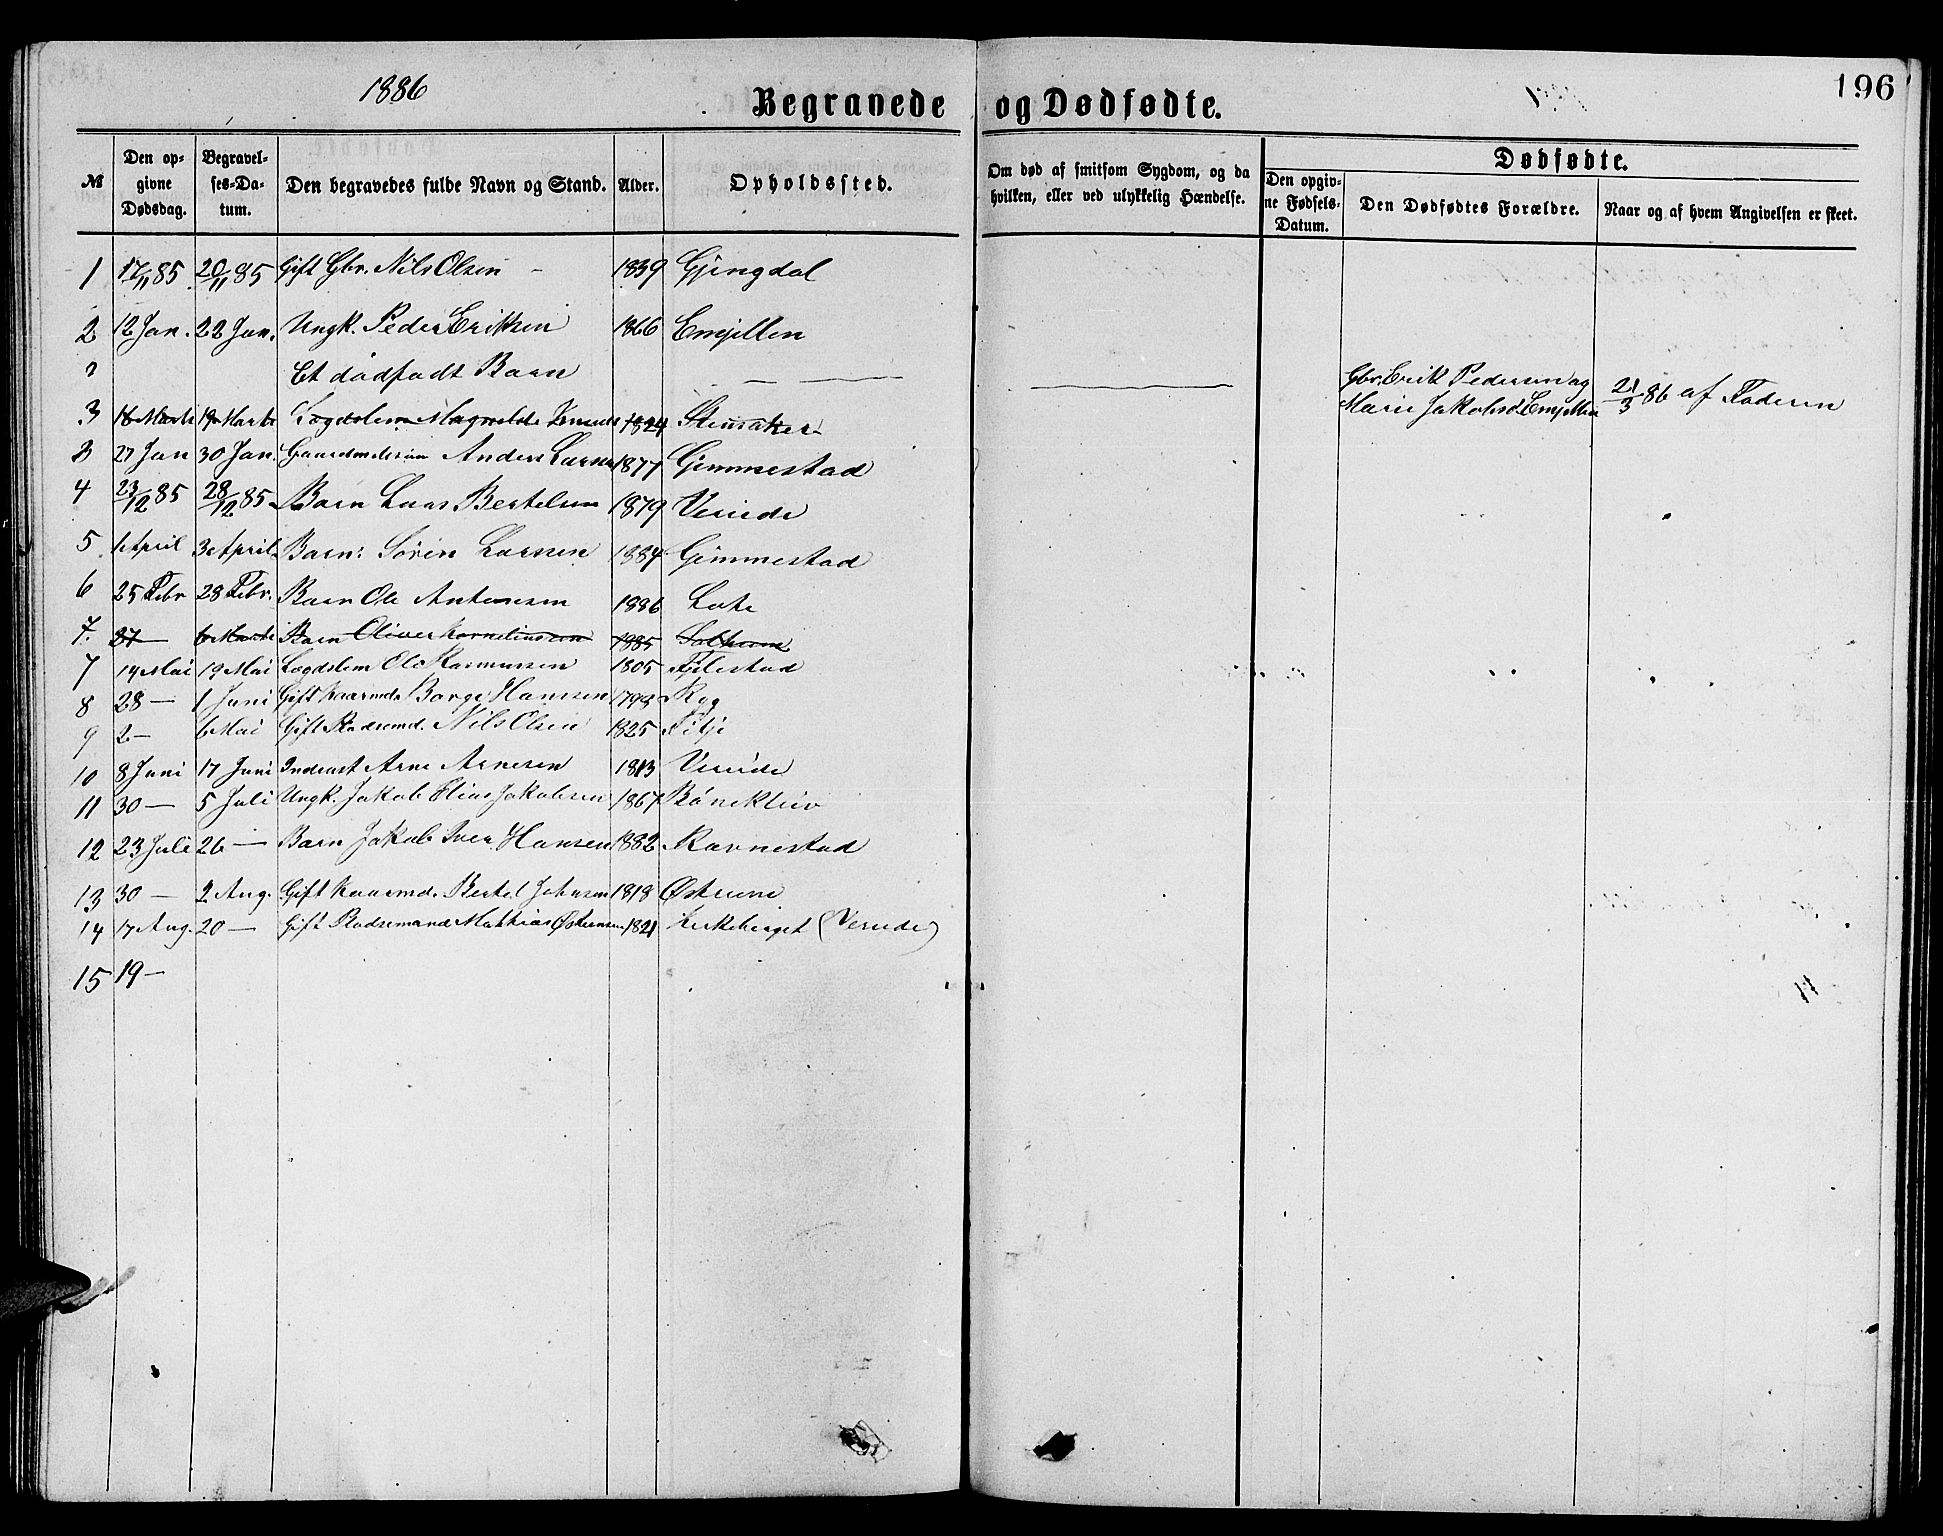 1886
Begravede og Dødfødte.
196
№
Den opgivne Dødsdag.
Begravelses-Datum.
Den begravedes fulde Navn og Stand.
Alder.
Opholdssted.
Om død af smitsom Sygdom, og da hvilken, eller ved ulykkelig Hændelse.
Dødfødte.
Den opgivne Fødsels-Datum.
Den Dødfødtes Forældre.
Naar og af hvem Angivelsen er skeet.
1 17/11 85 20/11 85 Gift Gbr. Nils Olsen 1839 Gjengdal
2 12 Jan. 22 Jan. Ungk. Peder Eriksen 1866 Emjellen
? Et dødfødt Barn — Gbr. Erik Pedersen og Marie Jakobsd Emjellen 21/3 86 af Faderen
3 16 Marts 19 Marts Lægdslem Magnilde 1824 Steinsaker
3 27 Jan 30 Jan. Anders Larsen 1877 Gimmestad
4 23/12 85 28/12 85 Barn Lars Bertelsen 1879 Vereide
5. 1 April 3 April Barn: Søren Larsen 1884 Gimmestad
6 25 Febr 28 Febr. Barn Ole Antonsen 1886 Lote
7. 27 — 6 Marts Barn Oliver Korneliussen 1885 Solheim
7 14 Mai 19 Mai Lægdslem Ole Rasmussen 1805 Fylestad
8 28 — 1 Juni Gift Kaarmd. Børge Hansen 1798 Ryg
9 2 — 6 Mai Gift Pladsemd. Nils Olsen 1825 Fitje
10 8 Juni 17 Juni Inderst Arne Arnesen 1813 Vereide
11 30 — 5 Juli Ungk. Jakob Elias Jakobsen 1867 Bønekleiv
12 23 Juli 26 — Barn Jakob Iver Hansen 1882 Ravnestad
13 30 — 2 Aug. Gift Kaarmd. Bertel Johnsen 1818 Østreim
14 17 Aug. 20 — Gift Pladsemand Mathias Østensen 1821 (Vereide)
15 19 —